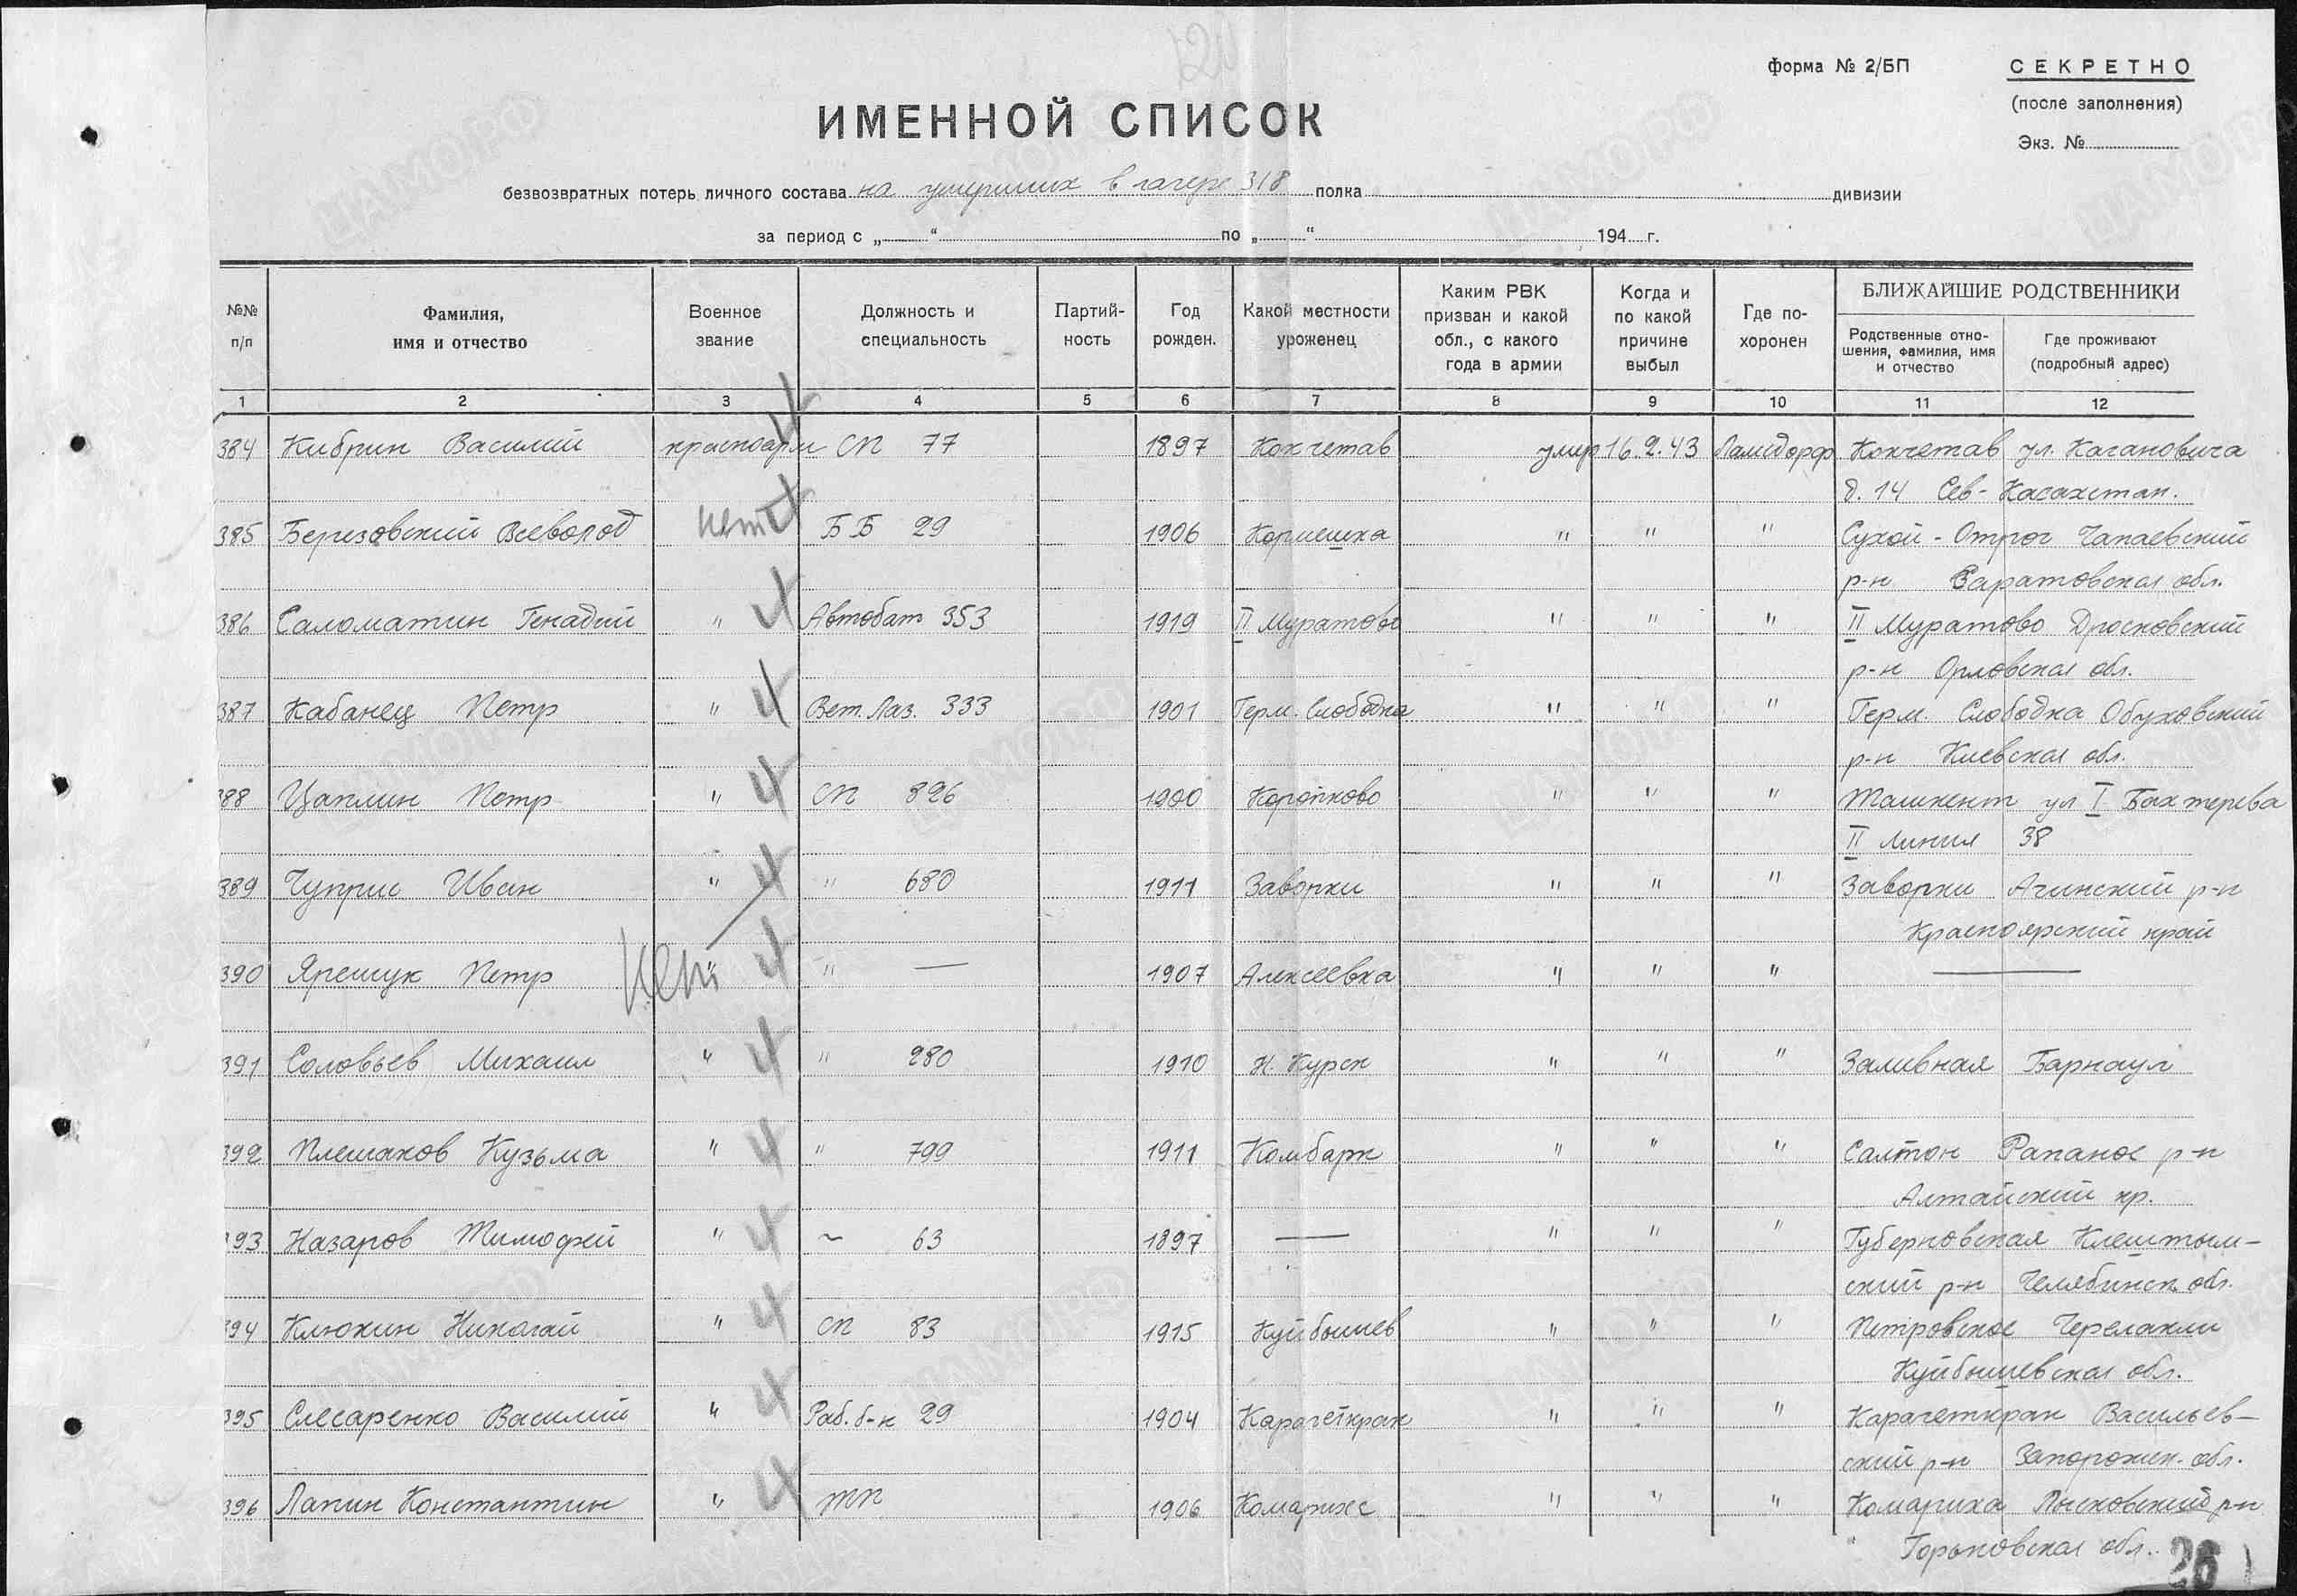 форма № 2/БП
СЕКРЕТНО
(после заполнения)
Экз. №
ИМЕННОЙ СПИСОК
безвозвратных потерь личного состава на умерших в лагере 318 полка дивизии
за период с „ “ по „ “ 194 г.
№№ п/п
Фамилия, имя и отчество
Военное звание
Должность и специальность
Партийность
Год рожден.
Какой местности уроженец
Каким РВК призван и какой обл., с какого года в армии
Когда и по какой причине выбыл
Где похоронен
БЛИЖАЙШИЕ РОДСТВЕННИКИ
Родственные отношения, фамилия, имя и отчество
Где проживают (подробный адрес)
1 2 3 4 5 6 7 8 9 10 11 12
384 Кибрин Василий красноарм СП 77 1897 Кокчетав умер 16.2.43 Ламсдорф Кокчетав ул. Кагановича
д. 14 Сев-Казахстан.
385 Березовский Всеволод нет ББ 29 1906 Кормешка " " " Сухой-Отрог Чапаевский
р-н Саратовская обл.
386 Саломатин Генадий " Автобат 353 1919 II Муратово " " " II Муратово Дросковский
р-н Орловская обл.
387 Кабанец Петр " Вет. Лаз. 333 1901 Герм. Слободка " " " Герм. Слободка Обуховский
р-н Киевская обл.
388 Цаплин Петр " СП 896 1900 " " " Ташкент ул I Бахтерева
II Линия 38
389 Чуприс Иван " " 680 1911 Заворки " " " Заворки Ачинский р-н
Красноярский край
390 Ярещук Петр нет " " — 1907 Алексеевка " " " —
391 Соловьев Михаил " " 280 1910 Н. Курск " " " Заливная Барнаул
392 Плешаков Кузьма " " 799 1911 Комбарк " " " Салтон р-н
Алтайский кр.
393 Назаров Тимофей " ~ 63 1897 — " " " Губерновская Клештым-
ский р-н Челябинск. обл.
394 Клюкин Николай " СП 83 1915 Куйбышев " " " Петровское Черелакли
Куйбышевская обл.
395 Слесаренко Василий " Раб. б-н 29 1904 Карачеткрак " " " Карачеткрак Васильев-
ский р-н Запорожск. обл.
396 Лапин Константин " ТП 1906 Комариха " " " Комариха Лысковский р-н
Горьковская обл.
26